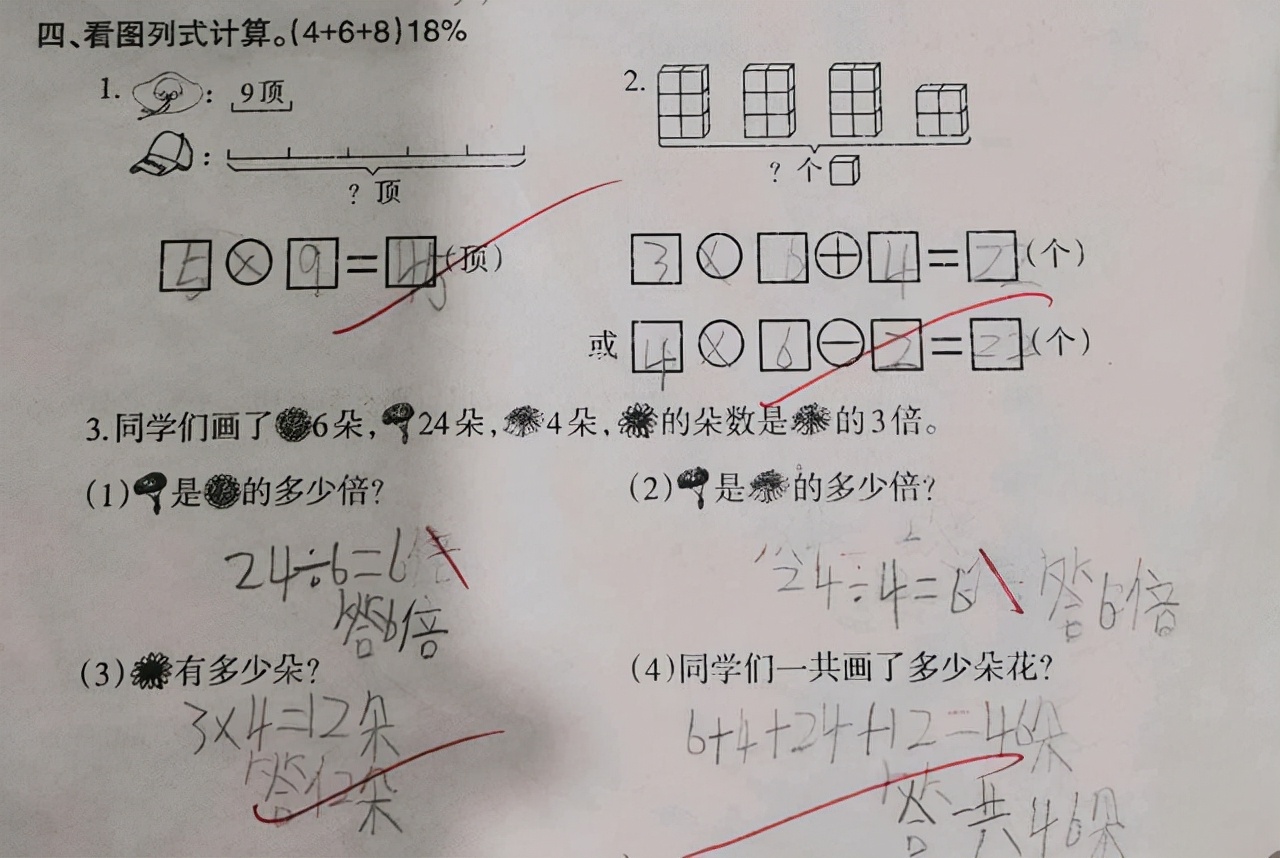 四、看图列式计算。(4+6+8)18%
1. : 9顶
: ? 顶
5 × 9 = 45 (顶)
2.
? 个
3 × 6 + 4 = 22 (个)
或 4 × 6 − 2 = 22 (个)
3.同学们画了 6朵, 24朵, 4朵, 的朵数是 的3倍。
(1) 是 的多少倍?
24÷6=6倍
答6倍
(2) 是 的多少倍?
24÷4=6 答6倍
(3) 有多少朵?
3×4=12朵
答12朵
(4)同学们一共画了多少朵花?
6+4+24+12=46朵
答一共46朵